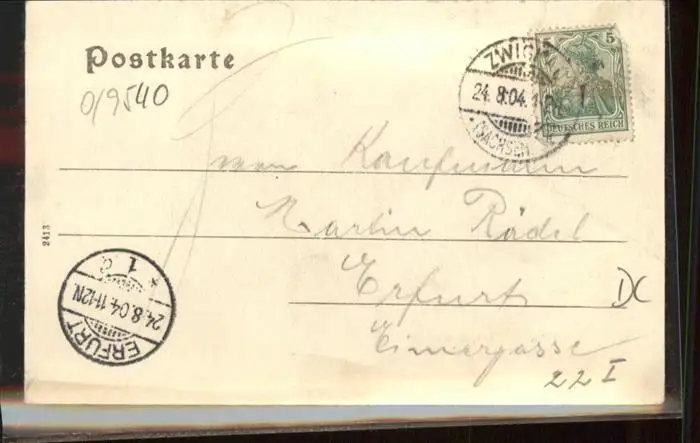 Postkarte
0/9540
ZWICK
24.8.04.
(SACHSEN)
5 5
DEUTSCHES REICH
Herrn Kaufmann
Martin Rädel
Erfurt
DC
Eimergasse
22 I
2413
* 1 d
24.8.04.11-12N.
ERFURT